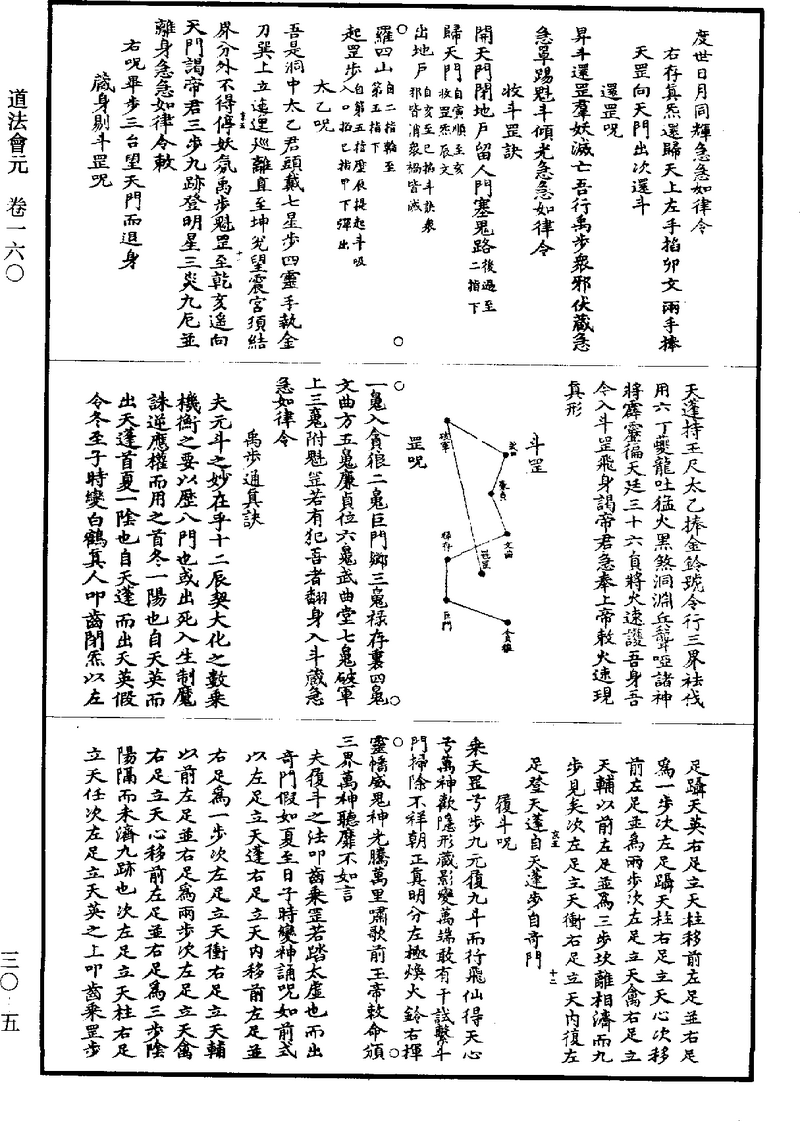 道法會元　卷一六〇
度世日月同輝急急如律令
右存真炁還歸天上左手掐卯文兩手捧
天罡向天門出次還斗
還罡呪
昇斗還罡羣妖滅亡吾行禹步衆邪伏藏急
急罩踢魁斗傾光急急如律令
收斗罡訣
開天門閉地戶留人門塞鬼路後過至二指下
歸天門自寅順至亥收罡炁辰文
出地戶自亥至巳掐斗訣衆邪皆消衆禍皆滅
羅四山自二指輪至第五指下
起罡步自第五指歷辰提起斗吸入口掐乙指甲下彈出
太乙呪
吾是洞中太乙君頭戴七星步四靈手執金
刀巽上立逡巡離直至坤兌望震宮須結
界分外不得停妖氛禹步魁罡至乾亥遙向
天門謁帝君三步九跡登明星三災九厄並
離身急急如律令敕
右呪畢步三台望天門而退身
藏身剔斗罡呪
天蓬持王尺太乙捧金鈴號令行三界祛伐
用六丁夔龍吐猛火黑煞洞淵兵聾啞諸神
將霹靂徧天廷三十六員將火速護吾身吾
令入斗罡飛身謁帝君急奉上帝敕火速現
真形
斗罡
破軍
武曲
廉貞
文曲
祿存
巨門
貪狼
罡呪
一鬼入貪狼二鬼巨門鄉三鬼祿存裏四鬼
文曲方五鬼廉貞位六鬼武曲堂七鬼破軍
上三魂附魁罡若有犯吾者翻身入斗藏急
急如律令
禹步通真訣
夫元斗之妙在乎十二辰契大化之數乘
機衡之要以歷八門也或出死入生制魔
誅逆應權而用之首冬一陽也自天英而
出天蓬首夏一陰也自天蓬而出天英假
令冬至子時變白鶴真人叩齒閉炁以左
足躡天英右足立天柱移前左足並右足
爲一步次左足躡天柱右足立天心次移
前左足並爲兩步次左足立天禽右足立
天輔以前左足並爲三步坎離相濟而九
步見矣次左足立天衝右足立天內復左
足登天蓬自天蓬步自奇門
履斗呪
乘天罡兮步九元復九斗而行飛仙得天心
兮萬神歡隱形藏影變萬端敢有干試繫斗
門掃除不祥朝正真明分左極煥火鈴右揮
靈幡威鬼神光騰萬里嘯歌前玉帝敕命頒
三界萬神聽靡不如言
夫復斗之法叩齒乘罡若踏太虛也而出
奇門假如夏至日子時變神誦呪如前式
以左足立天蓬右足立天內移前左足並
右足爲一步次左足立天衝右足立天輔
以前左足並右足爲兩步次左足立天禽
右足立天心移前左足並右足爲三步陰
陽隔而未濟九跡也次左足立天柱右足
立天任次左足立天英之上叩齒乘罡步
三〇·五